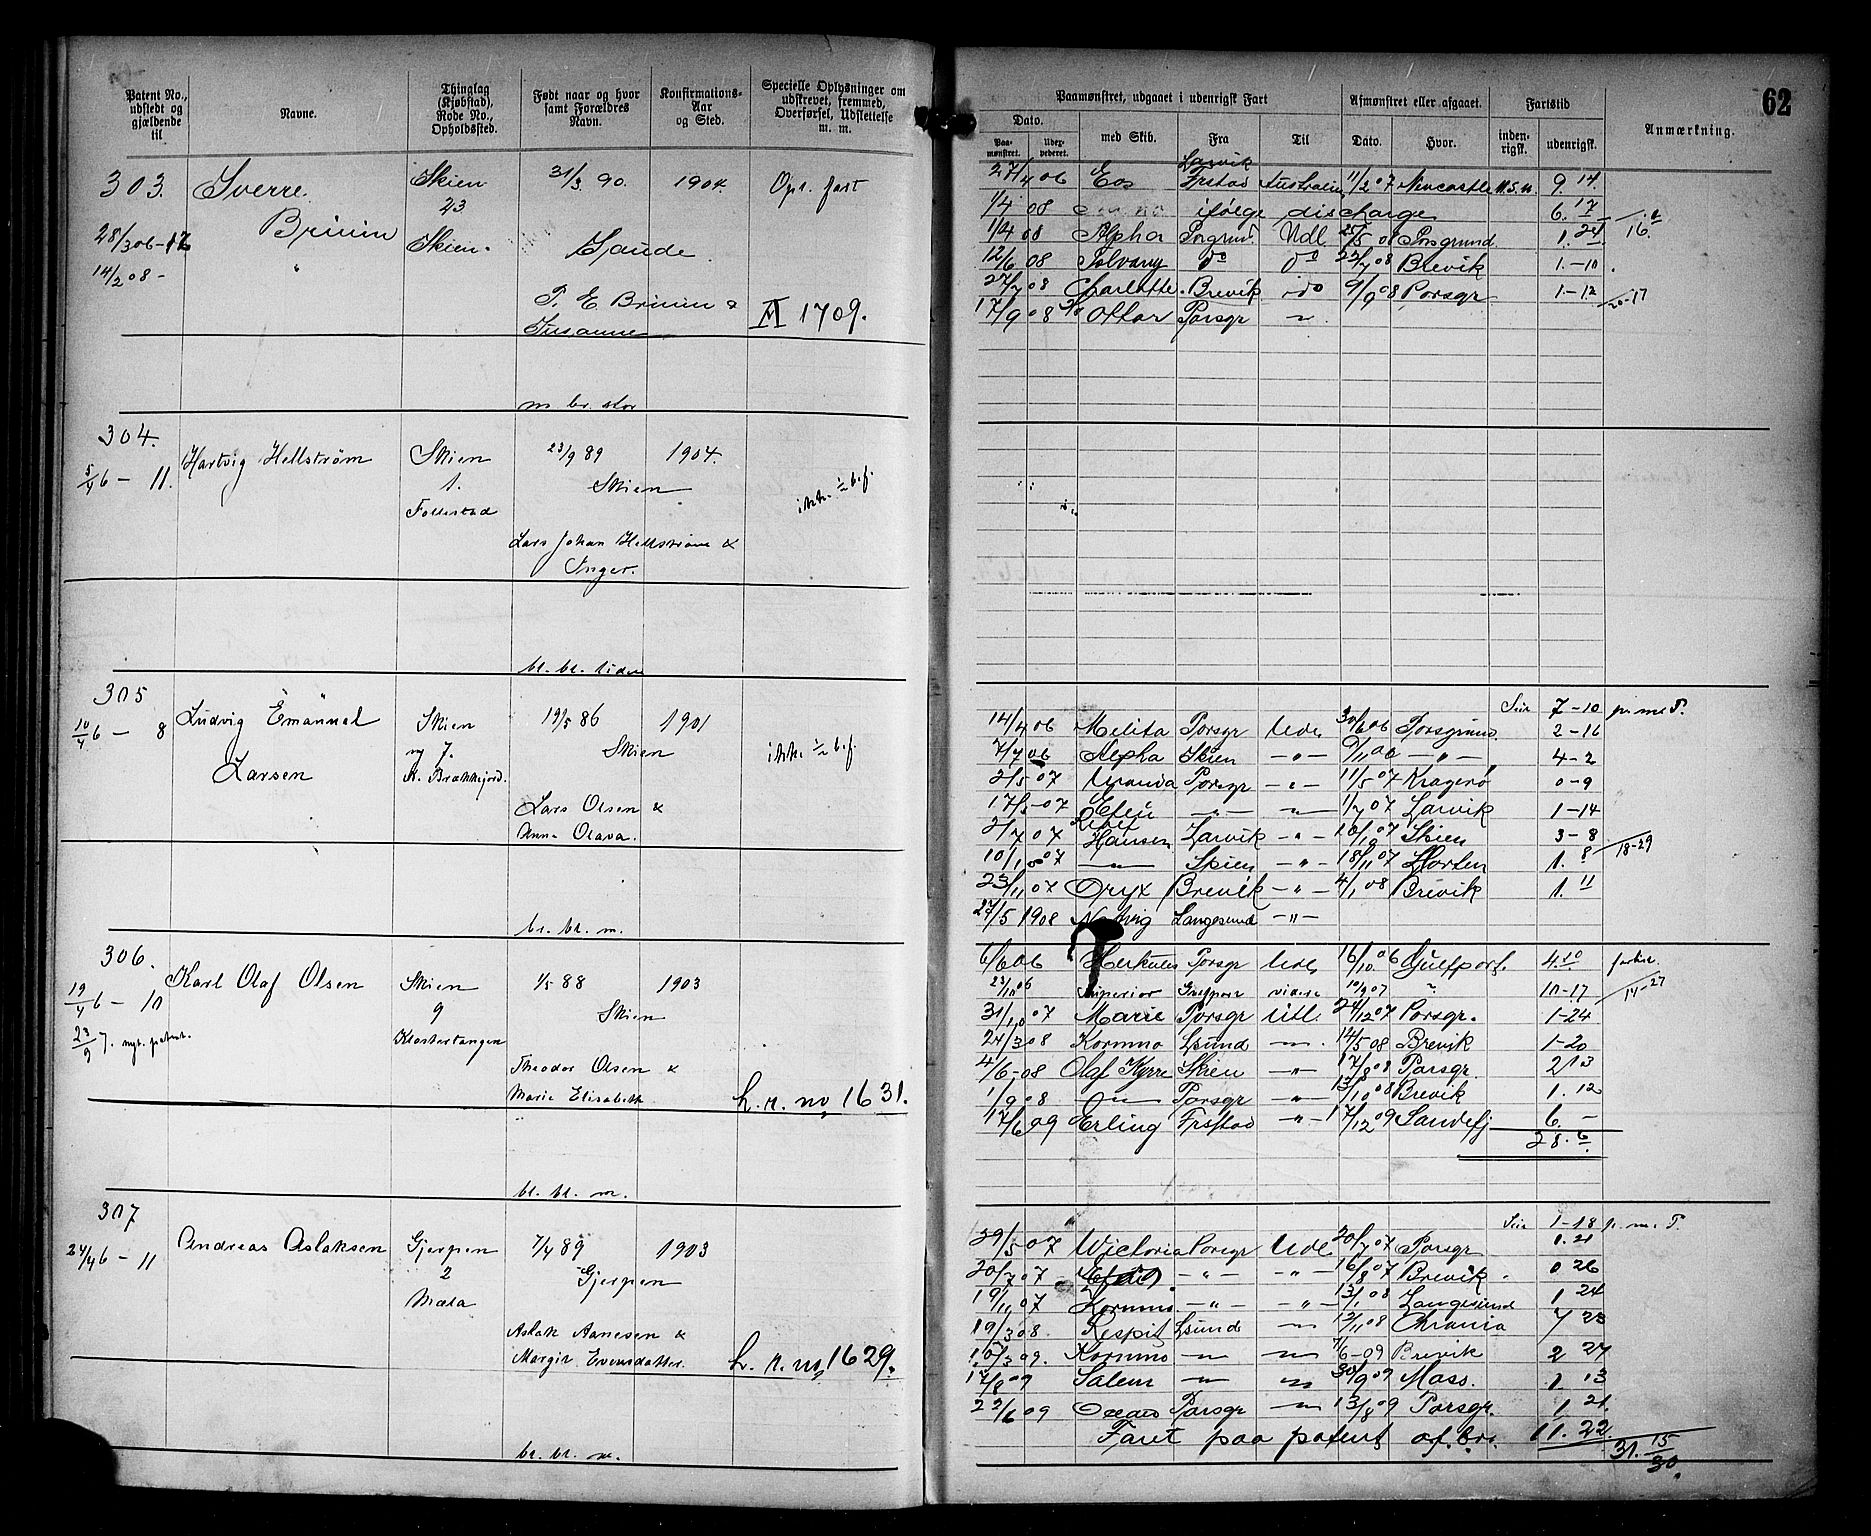 62
Patent No., udstedt og gjældende til
Navne.
Thinglag (Kjøbstad), Rode No., Opholdssted.
Født naar og hvor samt Forældres Navn.
Konfirmations-Aar og Sted.
Specielle Oplysninger om udskrevet, fremmed, Overførsel, Udslettelse m. m.
Paamønstret, udgaaet i udenrigsk Fart
Afmønstret eller afgaaet.
Fartstid
Anmærkning.
Dato.
Paamønstret.
med Skib.
Fra
Til
Dato.
Hvor.
indenrigsk.
udenrigsk.
303. Sverre Skien 31/3 90. 1904. Opt. fast
Bruun 23
28/3 06-12 Skien. Gaude
14/2 08 -
P. E. Bruun &
Susanne
1709.
m. br. stor
Larvik
27/4 06 Eos Frstad Australien 11/2 07 Newcastle N.S.W. 9. 14.
1/4 08 ifølge discharge 6. 17
1/4 08 Alpha Porsgrund Udl. 25/5 08 Porsgrund 1. 24 16.
12/6 08 Solvang do do 22/7 08 Brevik 1.-10
27/7 08 Charlotte Brevik do 9/9 08 Porsgr 1-12 20-17
17/9 08 Ottar Porsgr "
304. Hartvig Hellstrøm Skien 23/9 89 1904.
5/4 6 - 11. 1. Skien ikke 1/2 b.f.
Follestad
Lars Johan Hellstrøm &
Inger.
bl. br. liden
305 Ludvig Emanuel Skien 19/5 86 1901
10/4 6 - 8 7. Skien ikke 1/2 b.f.
Larsen N. Brækkejord.
Lars Olsen &
Anne Olava.
br. bl. m.
7-10
14/4 06 Melita Porsgr Udl. 30/6 06 Porsgrund 2-16
7/7 06 Alpha Skien - " - 9/11 06 - " - 4-2
2/5 07 Urania Porsgr - " - 11/5 07 Kragerø 0-9
17/5 07 - " - 1/7 07 Larvik 1-14
2/7 07 Hansen Larvik - " - 10/10 07 Skien 3-8 18-29
10/10 07 - " - Skien - " - 18/11 07 Horten 1. 8
23/11 07 Oryx Brevik - " - 4/1 08 Brevik 1. 11
27/5 1908 Langesund - " -
306. Karl Olaf Olsen Skien 1/5 88 1903
19/4 6 - 10 9 Skien
23/9 7. nyt patent. Klostertangen
Theodor Olsen &
Marie Elisabeth
h. r. no 1631.
bl. bl. m.
6/6 06 Herkules Porsgr Udl. 16/10 06 Gulfport. 4.10
23/10 06 Superior Gulfport videre 10/9 07 " 10-17 14-27
31/10 07 Marie Porsgr Udl. 24/12 07 Porsgr. 1-24
24/3 08 Kornmo Lsund - " - 14/5 08 Brevik 1-20
4/6-08 Olaf Kyrre Skien - " - 17/8 08 Porsgr. 2 13
1/9 08 - " - Porsgr - " - 13/10 08 Brevik 1. 12
17/6 09 Erling Frstad - " - 17/12 09 Sandefj 6. -
28. 6
307 Andreas Aslaksen Gjerpen 7/4 89 1903
24/4 6 - 11 2 Gjerpen
Mæla
Aslak Aanesen &
Margit Evensdatter.
h. r. no 1629.
bl. bl. m.
1-18
29/5 07 Victoria Porsgr Udl 20/7 07 Porsgr 1. 21
20/7 07 - " - - " - 16/8 07 Brevik. 0 26
19/11 07 Kornmo - " - - " - 13/1 08 Langesund 1 24
19/3 08. Respit Lsund - " - 12/11 08 Chrania 7 23
10/3 09. Kornmo - " - - " - 7/6-09 Brevik 2 27
17/8 09 Salem - " - - " - 30/9 09 Moss. 1. 13
22/6 09 Porsgr - " - 13/8 09 Porsgr. 1 21.
Faret paa patent af br. 11. 22.
31. 15/30.